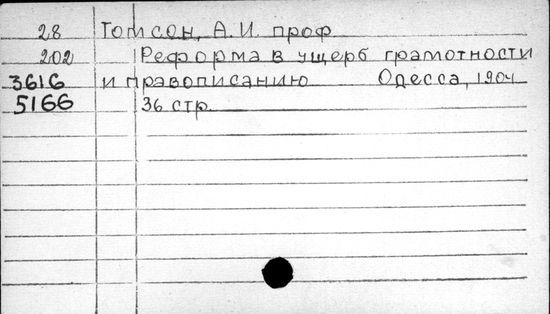 28 Томсон, А.И. проф
202 Реформа в ущерб грамотности
3616 и правописанию Одесса, 1904
5166 36 стр.